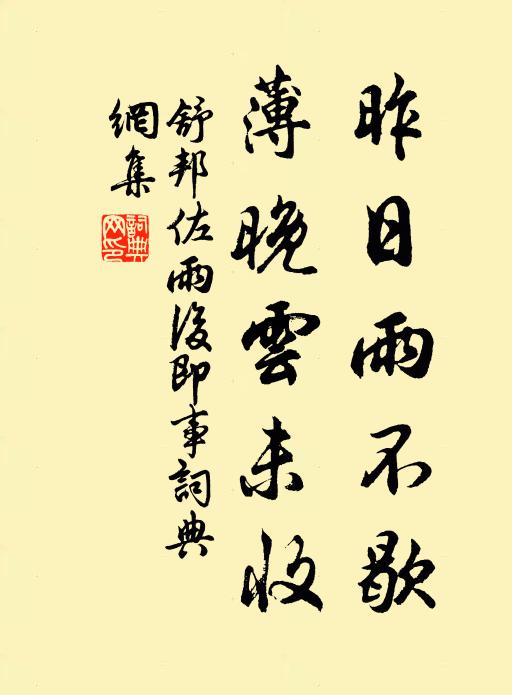 昨日雨不歇
薄晚雲未收
舒邦佐雨後即事詞典
網集
詞典
网印